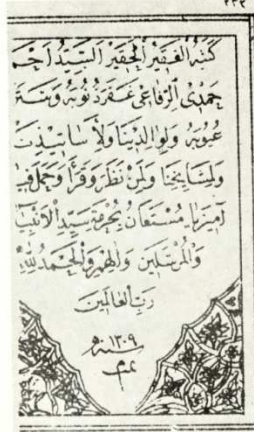 ٢٣٣
كتبه الفقير الحقير السيد احمد
حمدي الرفاعي غفر ذنوبه وستر
عيوبه ولوالدينا ولأساتيذنا
ولمشايخنا ولمن نظر وقرأ وحمل
آمين يا مستعان بحرمة سيد الأنبياء
والمرسلين والهم والحمد لله
رب العالمين
سنة ١٣٠٩
تمم